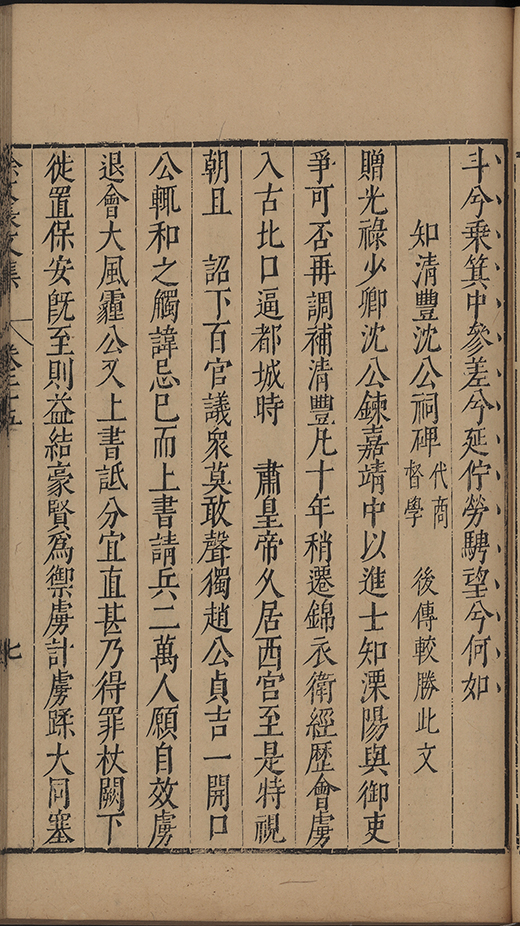 斗兮乗箕中參差兮延佇勞騁望兮何如
知清豐沈公祠碑 代商督學 後傳較勝此文
贈光祿少卿沈公鍊嘉靖中以進士知溧陽與御吏
爭可否再調補清豐凡十年稍遷錦衣衛經歷會虜
入古北口逼都城時 肅皇帝久居西宮至是特視
朝且 詔下百官議衆莫敢聲獨趙公貞吉一開口
公輒和之觸諱忌巳而上書請兵二萬人願自效虜
退會大風霾公又上書詆分宜直甚乃得罪杖闕下
徙置保安旣至則益結豪賢爲禦虜計虜蹂大同塞
徐文長文集 卷二十五 七